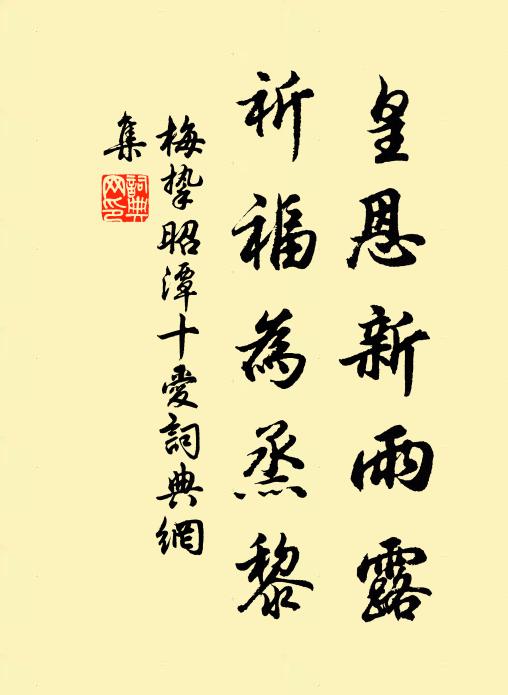 皇恩新雨露
祈福為烝黎
梅摯昭潭十愛詞典網
集
詞典網印